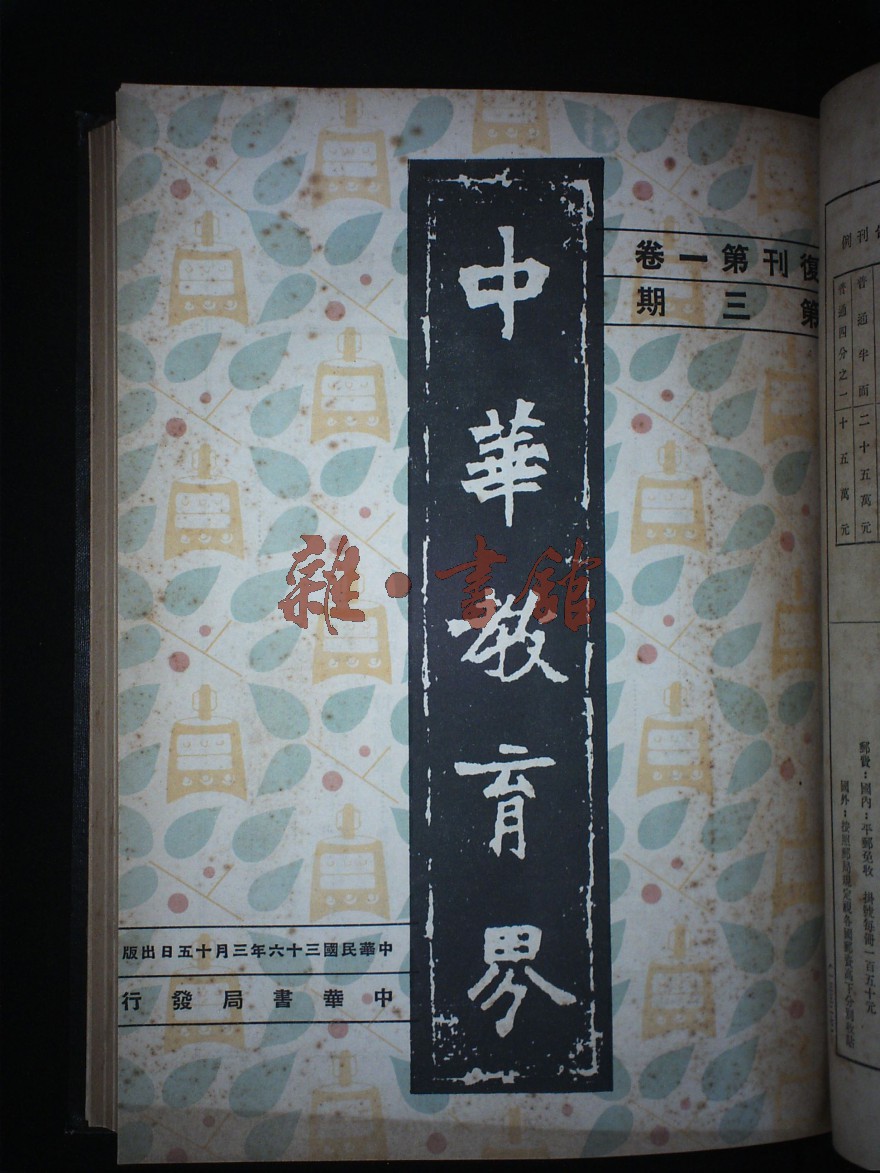 中華教育界
復刊第一卷
第三期
中華民國三十六年三月十五日出版
中華書局發行
雜·書館
刊例
普通半面二十五萬元
普通四分之一十五萬元
郵費：國內：平郵免收 掛號每冊一百五十元
國外：按照郵局規定視各國郵資高下分別收